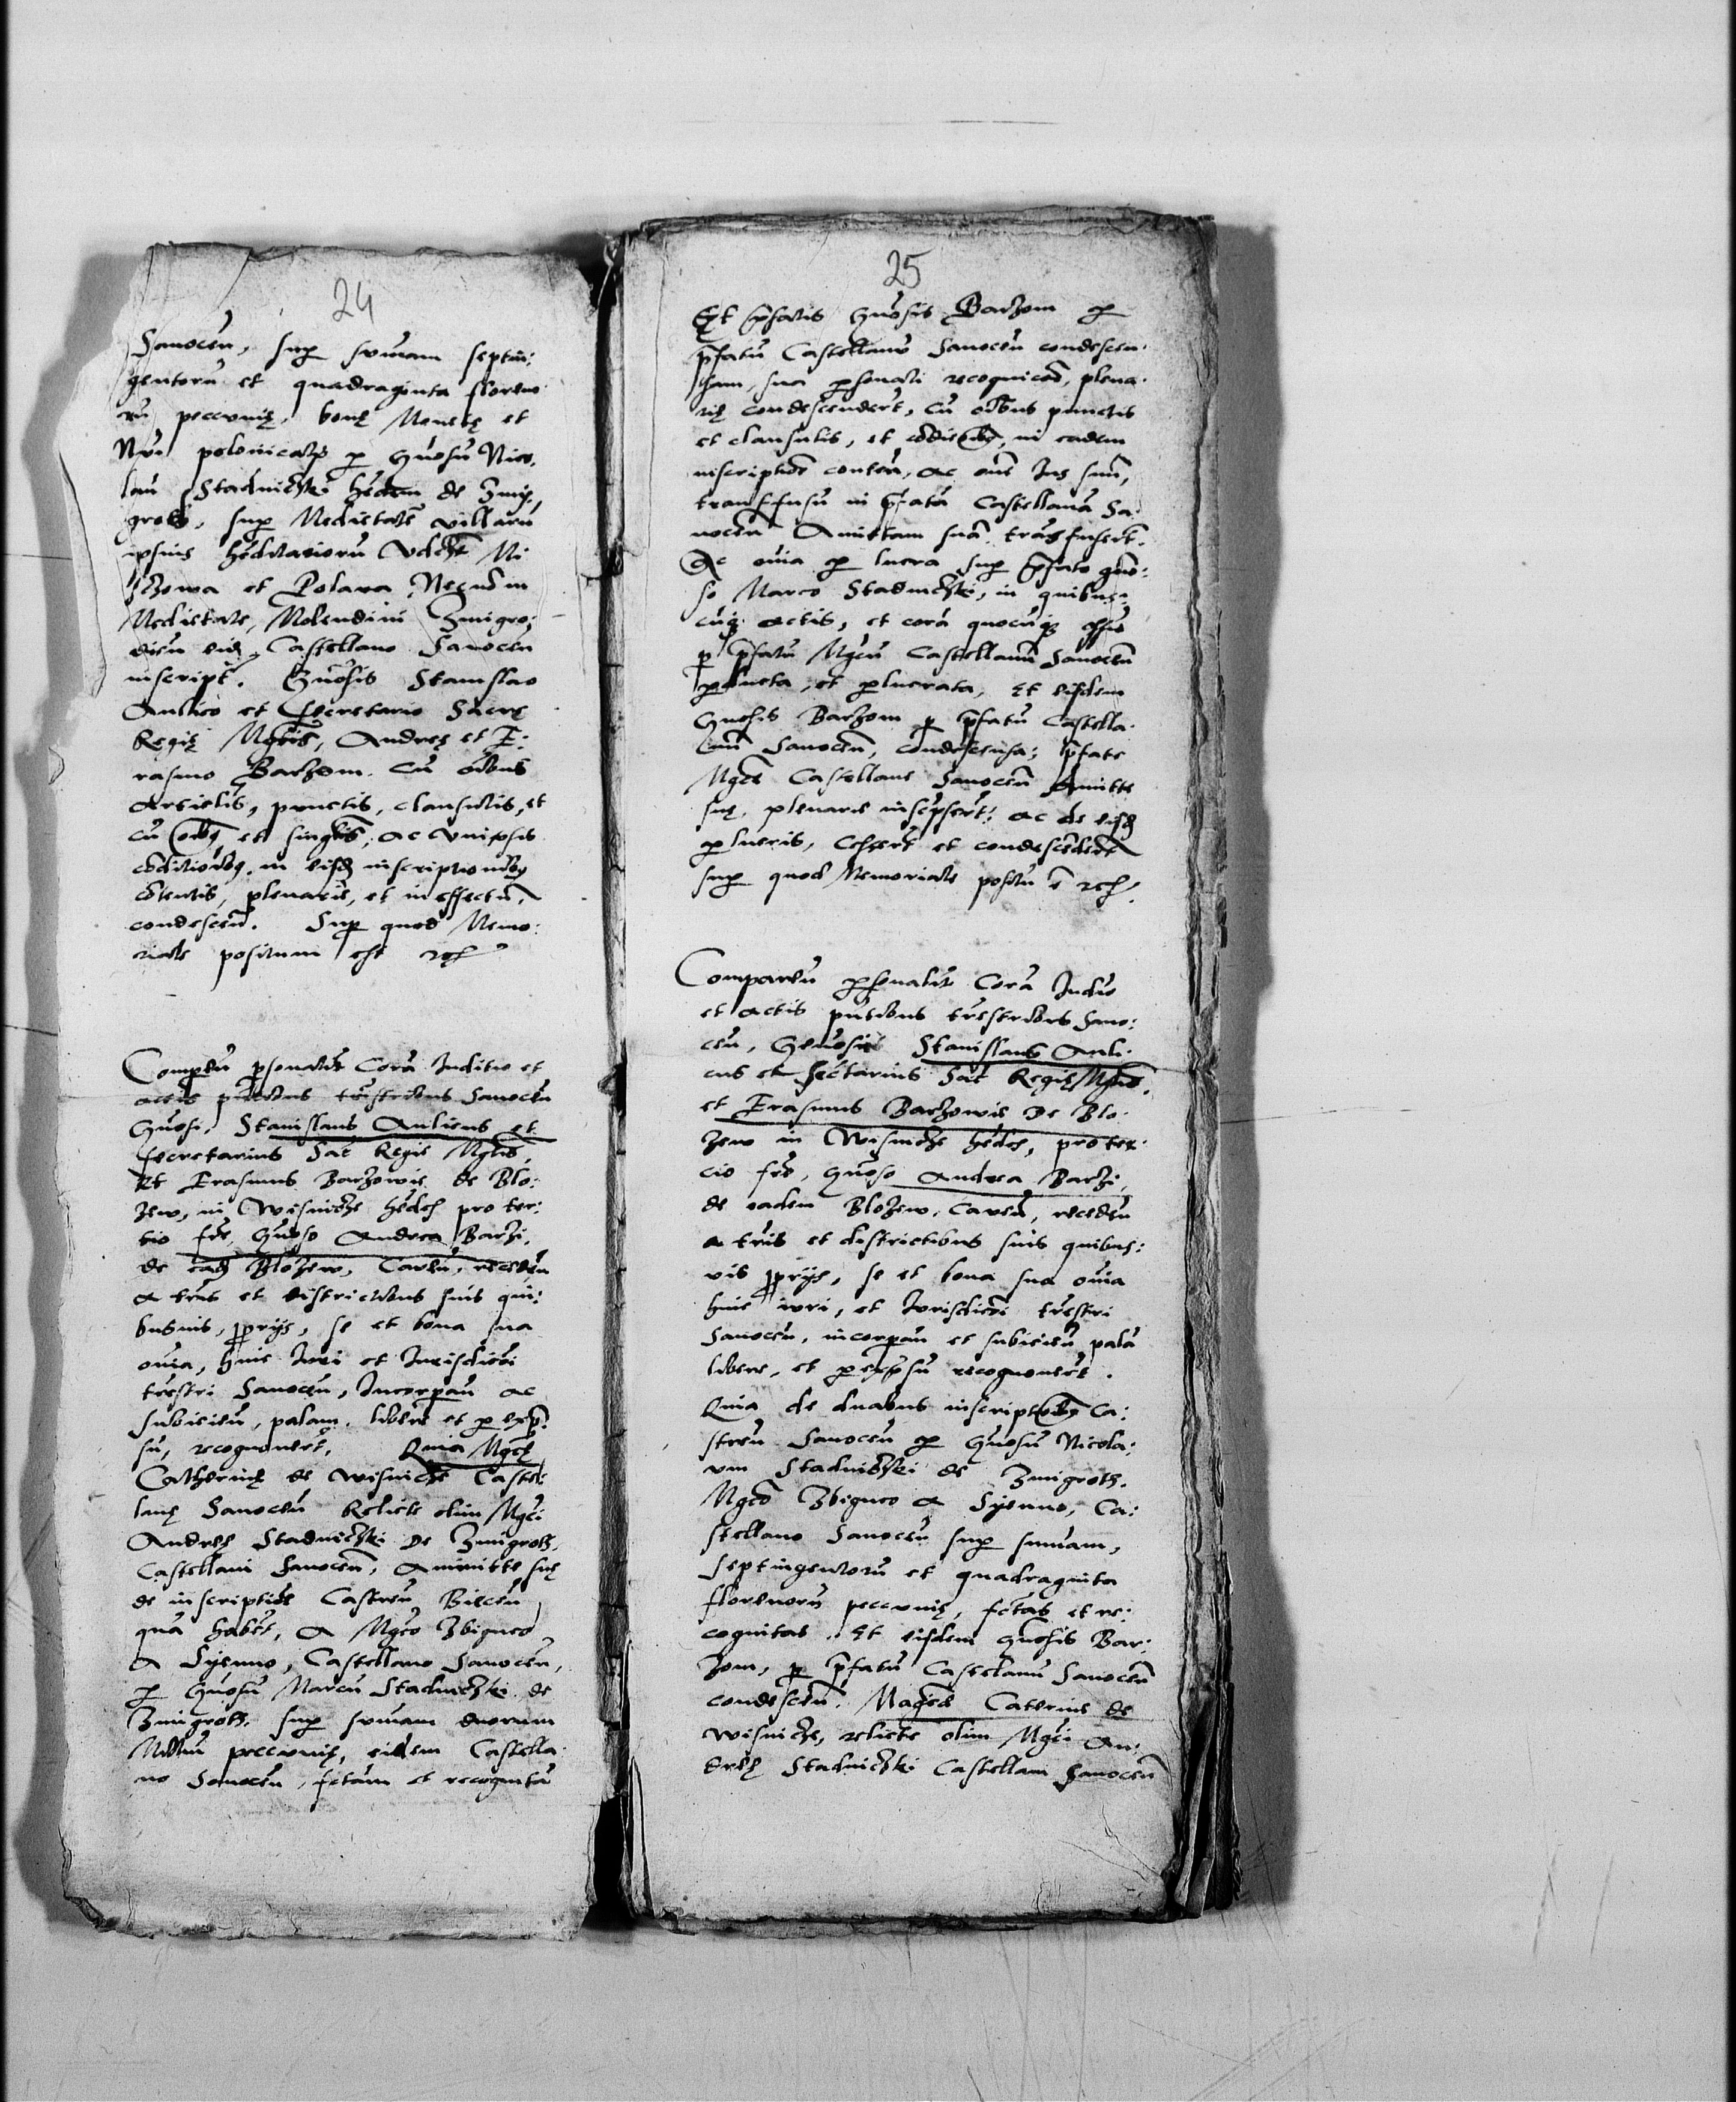 24
Sanoceñ, sup sumam septin:
gentorũ et quadraginta floreno
rũ peccunię, bonę Monetę et
Nrĩ polonicalis p Gñosũ Nico.
laũ Stadniczki hẽdem de Zmig.
grodz, sup Medietatẽ villarũ
ipsius hẽditariorũ Vdcẽt Mi
sczowa et Polana, Necnõ in
Medietate, Molendini Zmigro:
dieñ eid. Castellano Sanoceñ
inscript. Gñosis Stanislao
Aulico et Secretario Sacrę
Regię Mgtis, Andreę et E:
rasmo Barzom. Cũ oĩbus
Articulis, punctis, clausulis, et
cũ oĩbg et singlis, ac vniỹsis
cõditioibg, in eisd inscriptionibg
cõtentis, plenarie, et in effectũ,
condesceñ. Sup quod Memo:
riale positum est rcf
Compeũ psonalit̃ Corã Juditio et
actis pñtibus trrestribus Sanoceñ
Gñosi, Stanislaus Aulicus et
secretarius Sac̃ Regię Mgtis,
Et Erasmus Barzowie de Blo:
zew, in Wisnicze hẽdes pro ter:
tio frẽ, Gñoso Andrea Barzi,
de ead Blozew, Caveñ, recedeñ
a trris et districtibus suis qui:
busuis, pprijs, se et bona sua
oĩnia, huic Iuri et Iurisdictõi
trrestri Sanoceñ, Incorpañ ac
subicieũ, palam, liberẽ et p exp̃
sũ, recognoverũt. Quia Mgcę
Catherinę de Wisnicze Castel:
lanę Sanoceñ Relictę olim Mgci
Andreę Stadniczki De Zmigrodz,
Castellani Sanoceñ, Amittę suę
de inscriptiõe Castreñ Bieceñ
quã habet, A Mgco Zbigneo
A Syenno, Castellano Sanoceñ,
p Gñosũ Marcũ Stadniczki de
Zmigrodz. sup sumam duorum
Milliũ peccunię, eidem Castella
no Sanoceñ, fctam et recognitã
25
Et p̃fatis Gñosis Barzom p
p̃fatũ Castellanũ Sanoceñ condescen.
sam, sua psonali recognicõe, plena.
rię condescenderũt, cũ oĩbus punctis
et clausulis, et cõdicõibg, in eadem
inscriptiõe conteñ, ac oẽ Ius suũ,
transfusũ in p̃fatã Castellanã Sa.
noceñ Amittam suã transfuserũt.
Ac oĩa p lucra sup p̃fato gño:
so Marco Stadniczki, in quibus:
cũq actis, et corã quocũq offio
p p̃fatũ Mgcũ Castellanũ Sanoceñ
pducta, et plucrata, Et eisdem
Gñosis Barzom p p̃fatũ Castella.
nũ Sanoceñ, condescensa; p̃fate
Mgcẽ Castellane Sanoceñ Amitte
suę, plenarie inscripserũt; ac de eisd
p lucris, Cesserũt et condescẽderũt
sup quod Memoriale positũ ẽ rcf.
Comparũ psonalit̃ Corã Judio
et actis pñtibus trrestribus Sano:
ceñ, Generosi Stanislaus Auli.
cus et sectarius Sac̃ Regię Mgtis,
et Erasmus Barzowie De Blo.
zew in Wisnicze hẽdes, pro ter:
cio frẽ, Gñoso Andrea Barzi,
de eadem Blozew, Caveñ, recedeñ
a trris et districtibus suis quibus:
vis pprijs, se et bona sua oĩnia
huic iuri, et Iurisdictõi trrestri
Sanoceñ, incorpañ et subicieñ, palã
libere, et p exp̃sũ recognouerũt.
Quia de duabus inscriptõibg Ca:
streñ Sanoceñ p Gñosũ Nicola:
um Stadniczki de Zmigrodz.
Mgco Zbigneo A Syenno, Ca:
stellano Sanoceñ sup sumam,
septingentorũ et quadraginta
florenorũ peccunię, fctas et re:
cognitas. Et eisdem Gñosis Bar:
zom, p p̃fatũ Castelanũ Sanoceñ
condesceñ. Magcẽ Caterine de
Wisnicze, relicte olim Mgci An:
dreę Stadniczki Castellani Sanoceñ